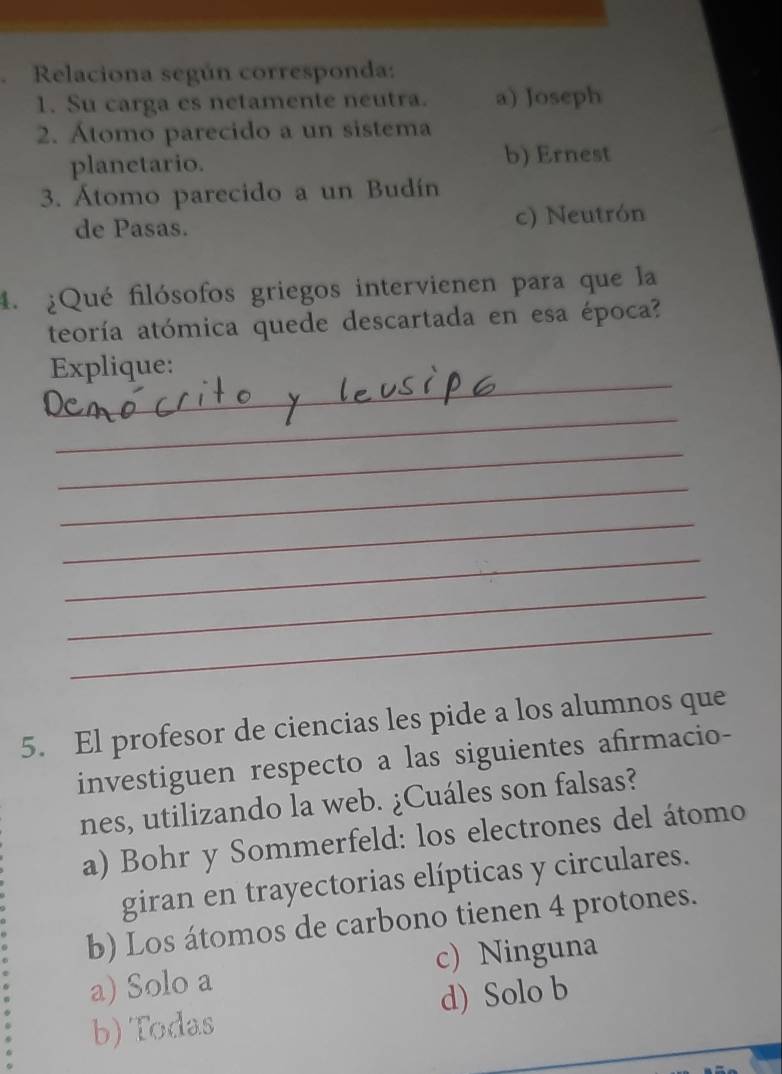 . Relaciona según corresponda:
1. Su carga es netamente neutra. a) Joseph
2. Átomo parecido a un sistema
planetario. b) Ernest
3. Átomo parecido a un Budín
de Pasas. c) Neutrón
4. ¿Qué filósofos griegos intervienen para que la
teoría atómica quede descartada en esa época?
Explique:
Demócrito y leusipo
5. El profesor de ciencias les pide a los alumnos que
investiguen respecto a las siguientes afirmacio-
nes, utilizando la web. ¿Cuáles son falsas?
a) Bohr y Sommerfeld: los electrones del átomo
giran en trayectorias elípticas y circulares.
b) Los átomos de carbono tienen 4 protones.
a) Solo a c) Ninguna
b) Todas d) Solo b